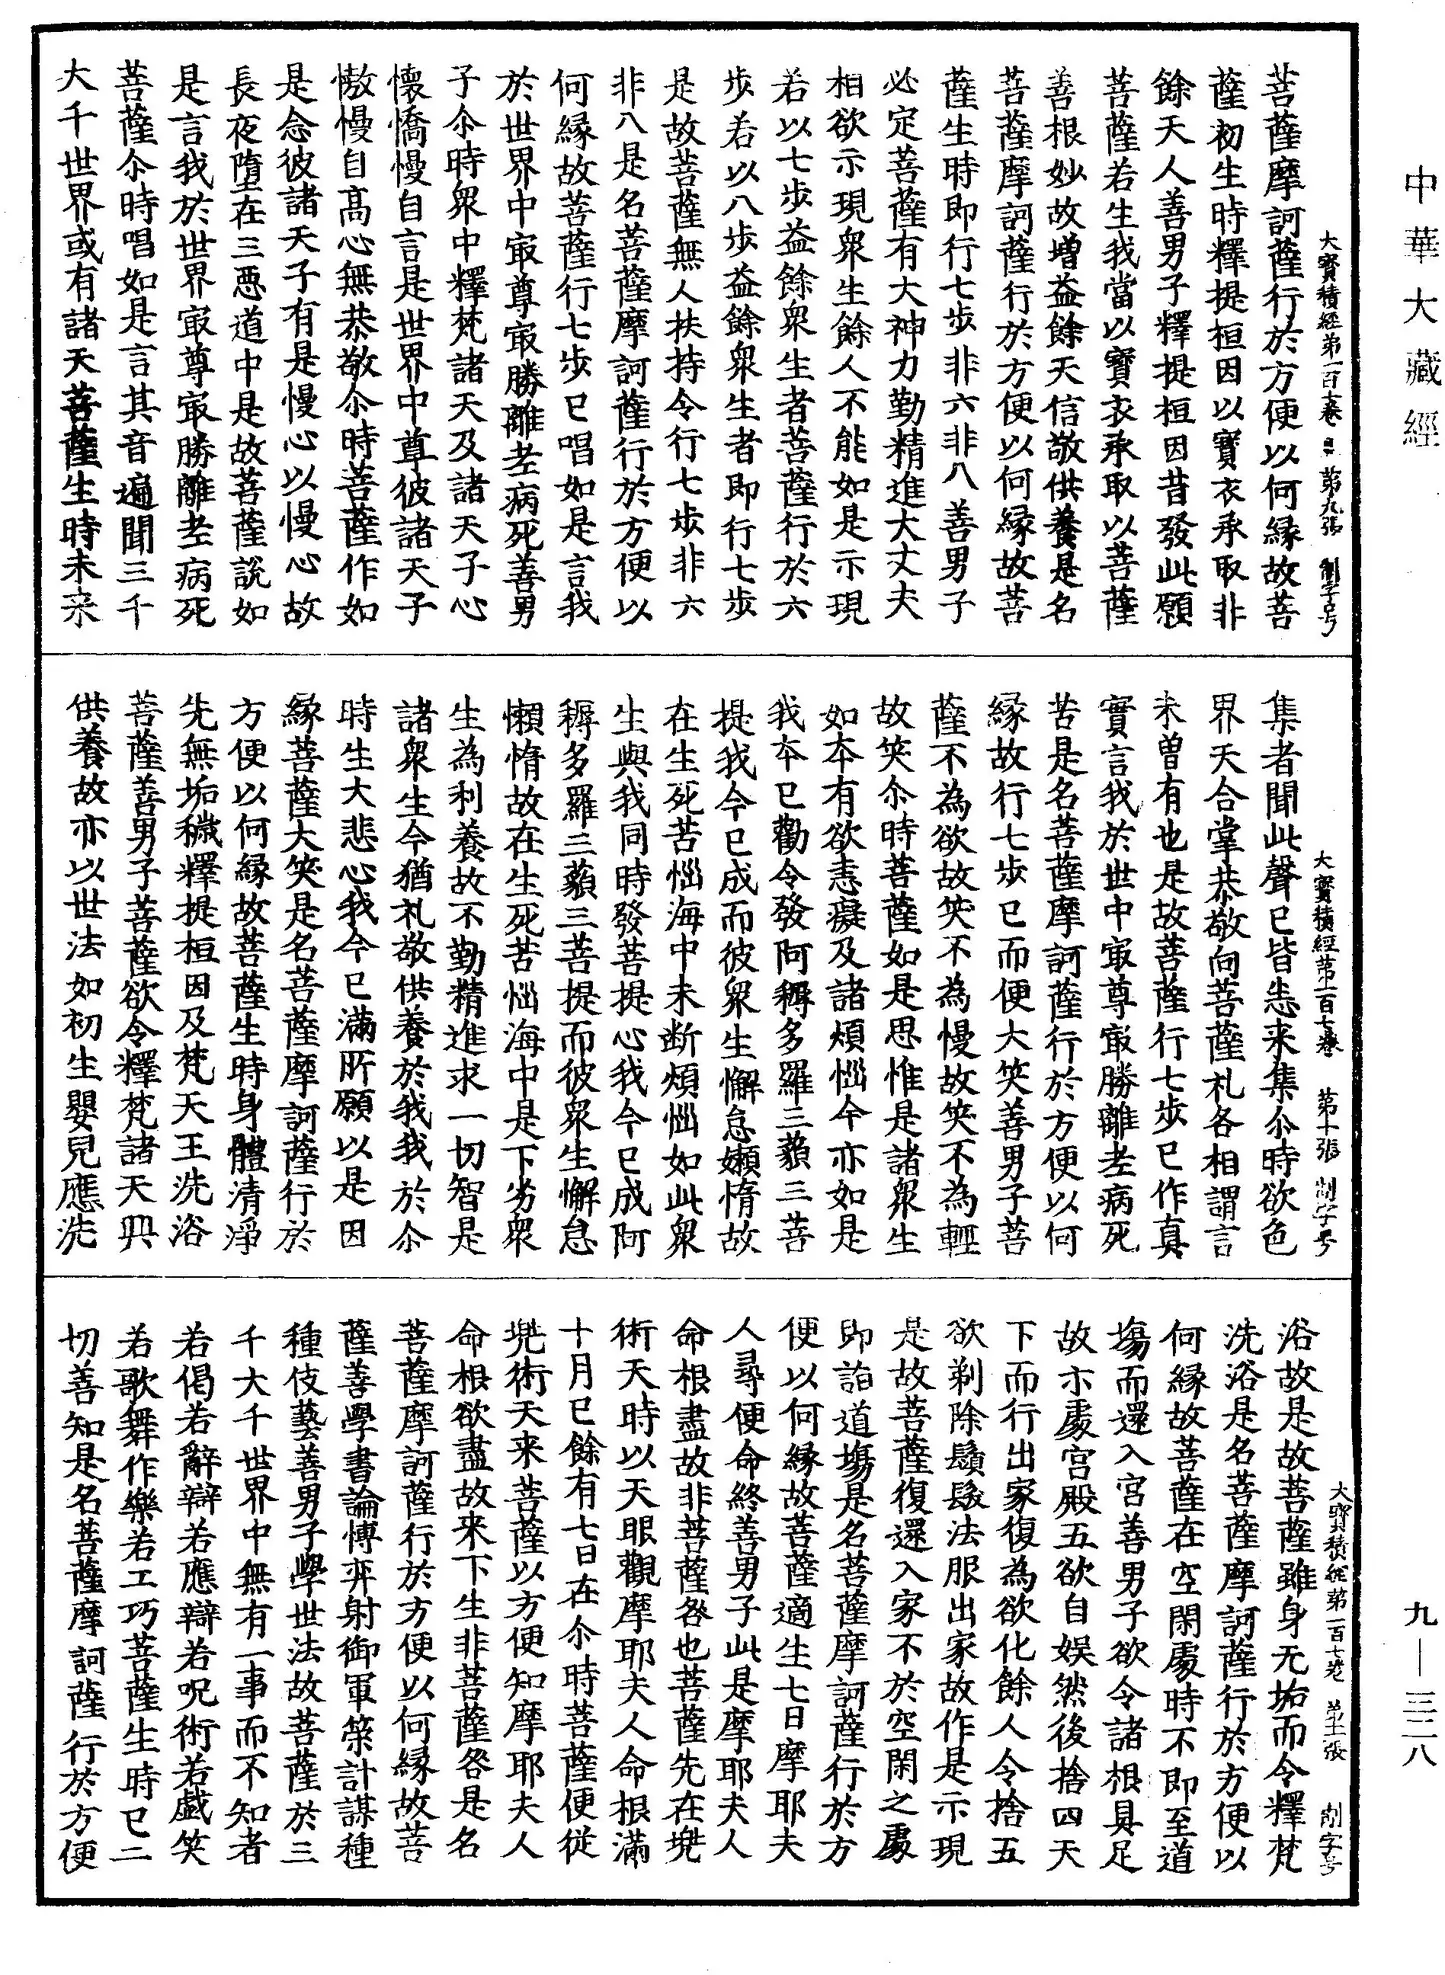 中華大藏經
大寶積經第一百七卷 第九張 制字号
菩薩摩訶薩行於方便以何緣故菩
薩初生時釋提桓因以寶衣承取非
餘天人善男子釋提桓因昔發此願
菩薩若生我當以寶衣承取以菩薩
善根妙故增益餘天信敬供養是名
菩薩摩訶薩行於方便以何緣故菩
薩生時即行七步非六非八善男子
必定菩薩有大神力勤精進大丈夫
相欲示現衆生餘人不能如是示現
若以七步益餘衆生者菩薩行於六
步若以八步益餘衆生者即行七步
是故菩薩無人扶持令行七步非六
非八是名菩薩摩訶薩行於方便以
何緣故菩薩行七步已唱如是言我
於世界中㝡尊㝡勝離老病死善男
子尒時衆中釋梵諸天及諸天子心
懷憍慢自言是世界中尊彼諸天子
慠慢自高心無恭敬尒時菩薩作如
是念彼諸天子有是慢心以慢心故
長夜墮在三惡道中是故菩薩說如
是言我於世界㝡尊㝡勝離老病死
菩薩尒時唱如是言其音遍聞三千
大千世界或有諸天菩薩生時未来
大寶積經第一百七卷 第十張 制字号
集者聞此聲已皆悉来集尒時欲色
界天合掌恭敬向菩薩礼各相謂言
未曾有也是故菩薩行七步已作真
實言我於世中㝡尊㝡勝離老病死
苦是名菩薩摩訶薩行於方便以何
緣故行七步已而便大笑善男子菩
薩不為欲故笑不為慢故笑不為輕
故笑尒時菩薩如是思惟是諸衆生
如本有欲恚癡及諸煩惱今亦如是
我本已勸令發阿耨多羅三藐三菩
提我今已成而彼衆生懈怠嬾惰故
在生死苦惱海中未断煩惱如此衆
生與我同時發菩提心我今已成阿
耨多羅三藐三菩提而彼衆生懈怠
懶惰故在生死苦惱海中是下劣衆
生為利養故不勤精進求一切智是
諸衆生今猶礼敬供養於我我於尒
時生大悲心我今已滿所願以是因
緣菩薩大笑是名菩薩摩訶薩行於
方便以何緣故菩薩生時身體清淨
先無垢穢釋提桓因及梵天王洗浴
菩薩善男子菩薩欲令釋梵諸天興
供養故亦以世法如初生嬰兒應洗
大寶積經第一百七卷 第十一張 制字号
浴故是故菩薩雖身无垢而令釋梵
洗浴是名菩薩摩訶薩行於方便以
何緣故菩薩在空閑處時不即至道
場而還入宮善男子欲令諸根具足
故亦處宮殿五欲自娛然後捨四天
下而行出家復為欲化餘人令捨五
欲剃除鬚髮法服出家故作是示現
是故菩薩復還入家不於空閑之處
即詣道場是名菩薩摩訶薩行於方
便以何緣故菩薩適生七日摩耶夫
人尋便命終善男子此是摩耶夫人
命根盡故非菩薩咎也菩薩先在兠
術天時以天眼觀摩耶夫人命根滿
十月已餘有七日在尒時菩薩便從
兠術天来菩薩以方便知摩耶夫人
命根欲盡故来下生非菩薩咎是名
菩薩摩訶薩行於方便以何緣故菩
薩善學書論愽弈射御軍䇿計謀種
種伎藝善男子學世法故菩薩於三
千大千世界中無有一事而不知者
若偈若辭辯若應辯若呪術若戲笑
若歌舞作樂若工巧菩薩生時已二
切善知是名菩薩摩訶薩行於方便
九—三二八